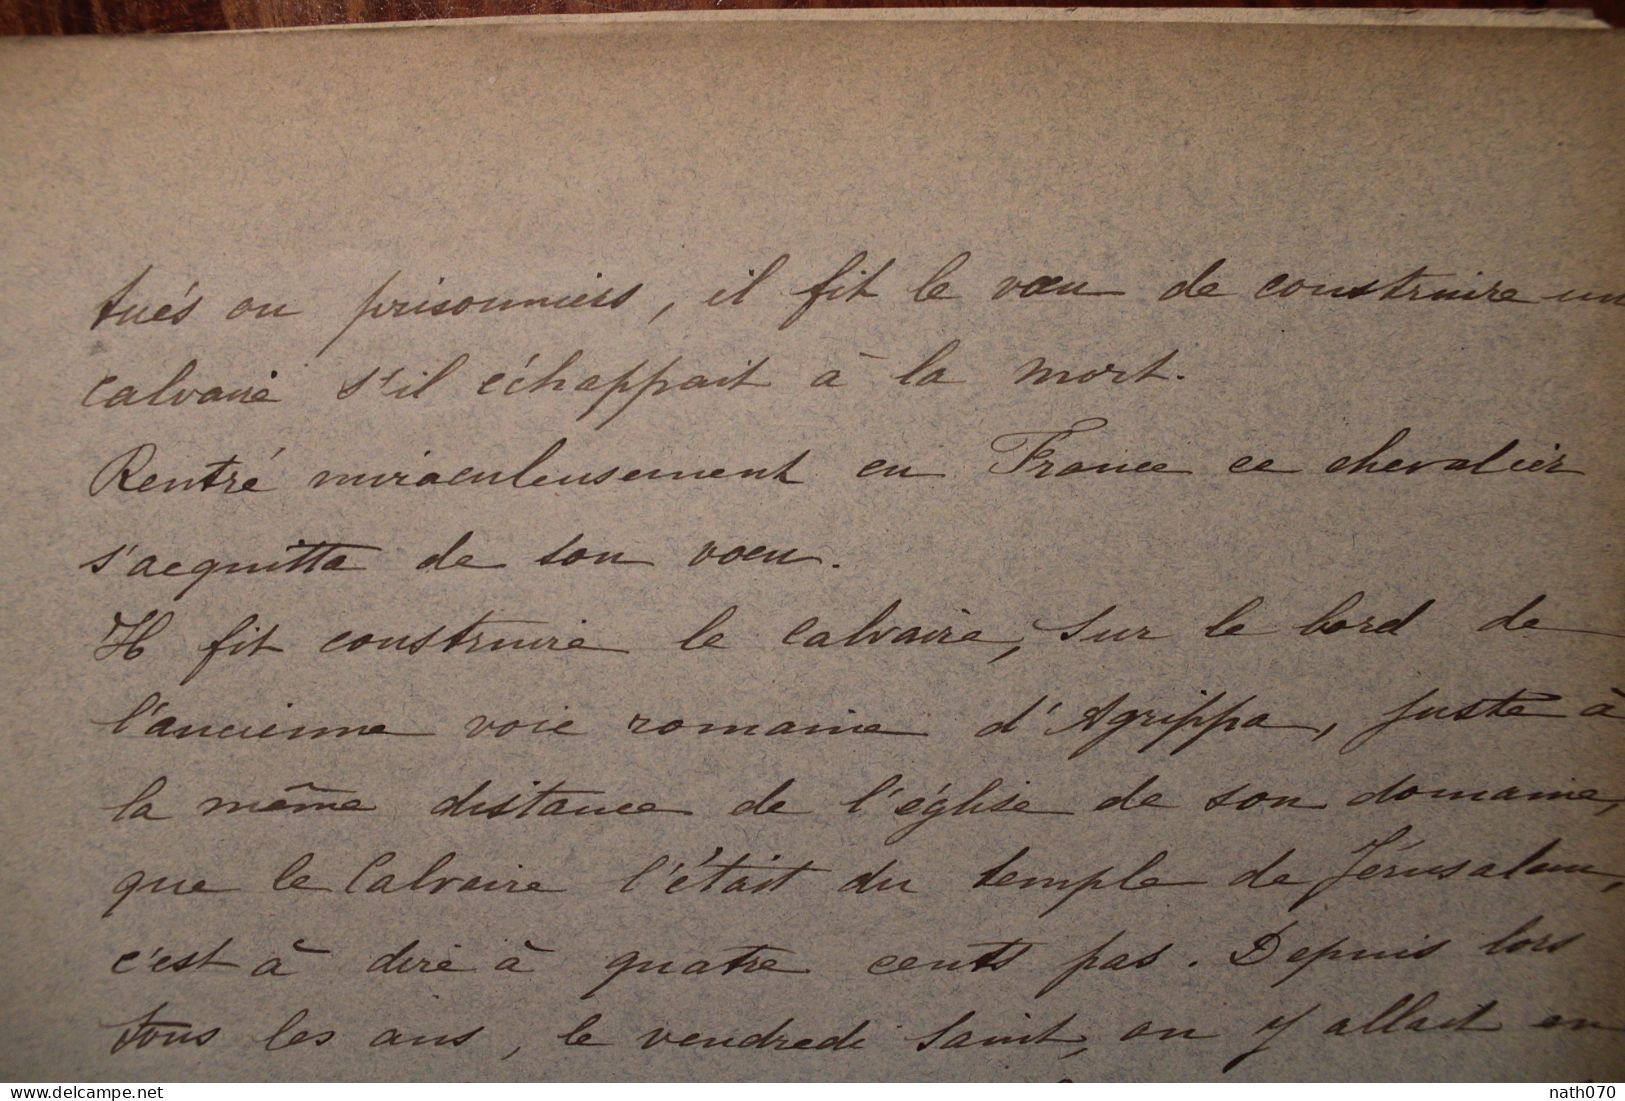 tués ou prisonniers, il fit le vœu de construire un
calvaire s'il échappait à la mort.
Rentré miraculeusement en France ce chevalier
s'acquitta de son vœu.
Il fit construire le calvaire, sur le bord de
l'ancienne voie romaine d'Agrippa, juste à
la même distance de l'église de son domaine,
que le Calvaire l'était du temple de Jérusalem,
c'est à dire à quatre cents pas. Depuis lors
tous les ans, le vendredi saint, on y allait en
delcampe.net
nath070